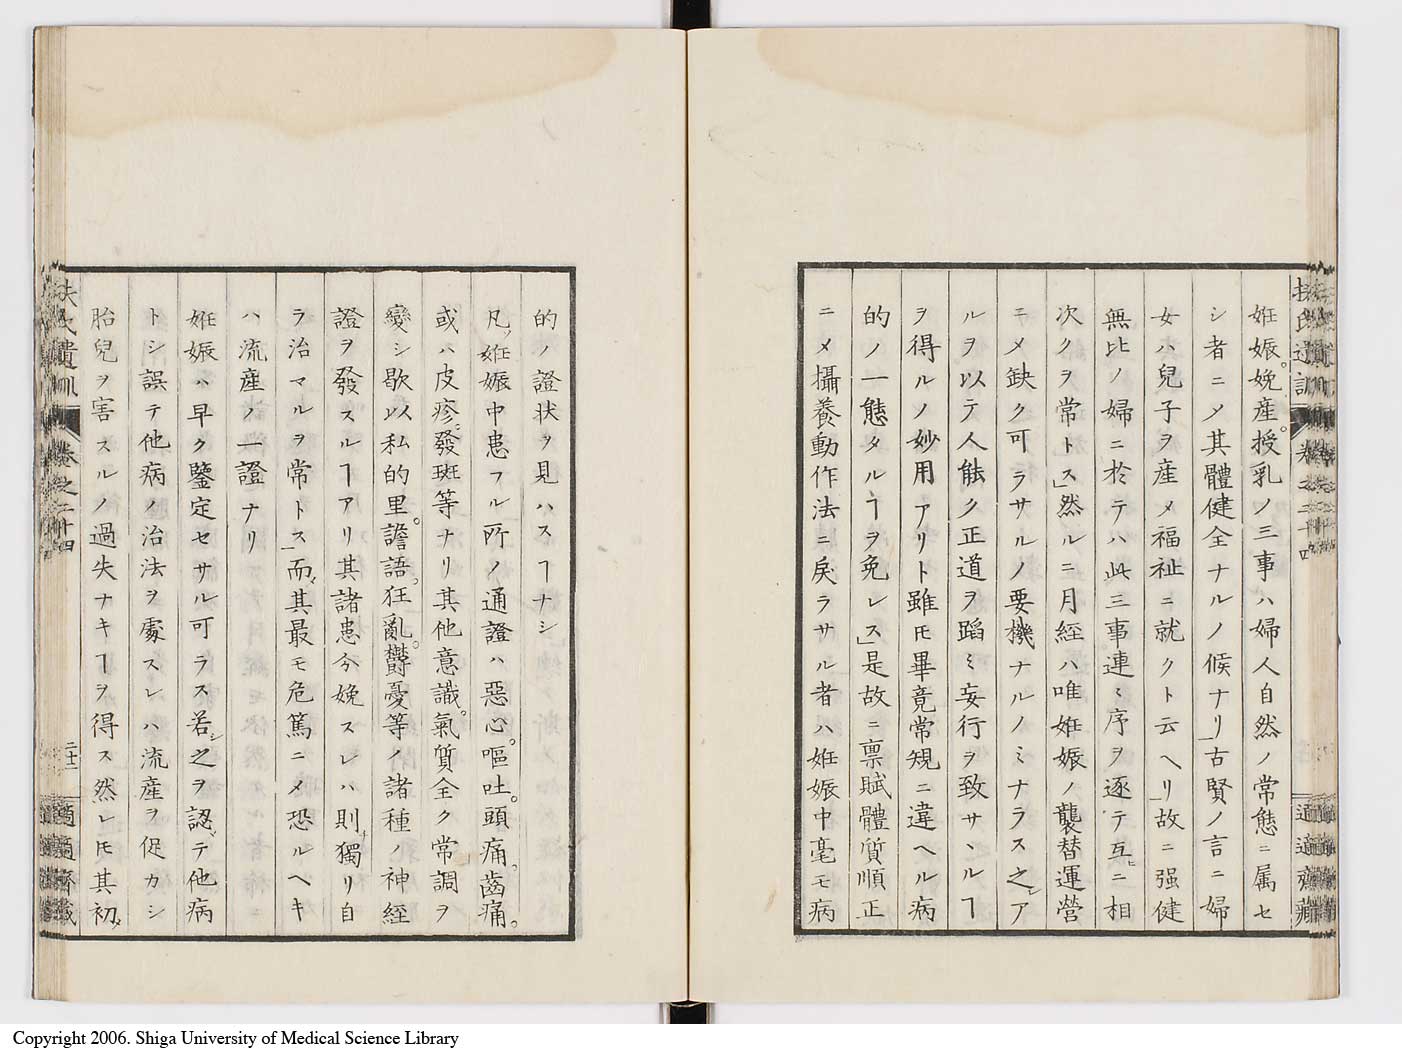 妊娠。娩産。授乳ノ三事ハ婦人自然ノ常態ニ属セ
シ者ニメ其體健全ナルノ候ナリ」古賢ノ言ニ婦
女ハ兒子ヲ産メ福祉ニ就クト云ヘリ」故ニ强健
無比ノ婦ニ於テハ此三事連〻序ヲ逐テ互ヒニ相
次クヲ常トス」然ルニ月經ハ唯妊娠ノ襲替運營
ニメ缺ク可ラサルノ要機ナルノミナラス之レア
ルヲ以テ人能ク正道ヲ蹈ミ妄行ヲ致サヽルヿ
ヲ得ルノ妙用アリト雖𪜈畢竟常規ニ違ヘル病
的ノ一態タルヿヲ免レス」是故ニ禀賦體質順正
ニメ攝養動作法ニ戾ラサル者ハ妊娠中毫モ病
扶氏遺訓
卷之二十四
適適齋藏
的ノ證状ヲ見ハスヿナシ
凡ソ妊娠中患フル所ノ通證ハ惡心。嘔吐。頭痛。齒痛。
或ハ皮疹。發斑等ナリ其他意識。氣質全ク常調ヲ
變シ歇以私的里。譫語。狂亂。欝憂等ノ諸種ノ神經
證ヲ發スルヿアリ其諸患分娩スレハ則チ獨リ自
ラ治マルヲ常トス」而メ其最モ危篤ニメ恐ルヘキ
ハ流産ノ一證ナリ
妊娠ハ早ク鑒定セサル可ラス若シ之ヲ認メテ他病
トシ誤テ他病ノ治法ヲ處スレハ流産ヲ促カシ
胎兒ヲ害スルノ過失ナキヿヲ得ス然レ𪜈其初メ
扶氏遺訓
卷之二十四
二十二
適適齋藏
Copyright 2006. Shiga University of Medical Science Library